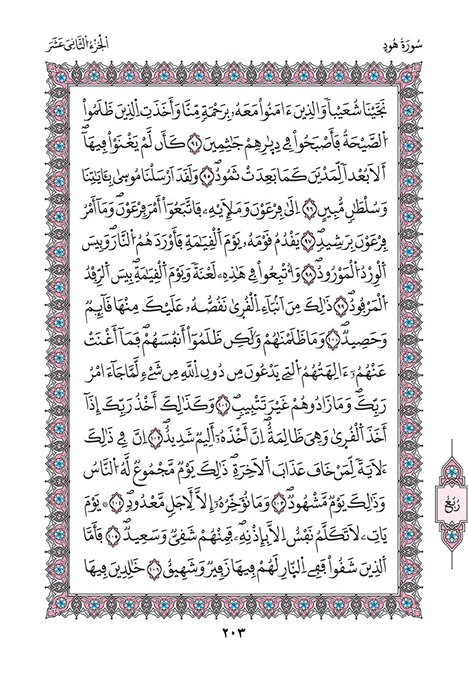 سُورَةُ هُودٍ
اَلْجُزْءُ الثَّانِيَ عَشَرَ
نَجَّيْنَا شُعَيْباٗ وَالذِينَ ءَامَنُواْ مَعَهُۥ بِرَحْمَةٖ مِّنَّا وَأَخَذَتِ الذِينَ ظَلَمُواْ
الصَّيْحَةُ فَأَصْبَحُواْ فِے دِيٰرِهِمْ جَٰثِمِينَ ٩٤ كَأَن لَّمْ يَغْنَوْاْ فِيهَآ
أَلَا بُعْداٗ لِّمَدْيَنَ كَمَا بَعِدَتْ ثَمُودُ ٩٥ وَلَقَدْ اَرْسَلْنَا مُوس۪يٰ بِـَٔايَٰتِنَا
وَسُلْطَٰنٖ مُّبِينٍ ٩٦ اِلَيٰ فِرْعَوْنَ وَمَلَإِيْهِۦ فَاتَّبَعُوٓاْ أَمْرَ فِرْعَوْنَ وَمَآ أَمْرُ
فِرْعَوْنَ بِرَشِيدٖ ٩٧ يَقْدُمُ قَوْمَهُۥ يَوْمَ اَلْقِيَٰمَةِ فَأَوْرَدَهُمُ النَّارَ وَبِيسَ
اَلْوِرْدُ الْمَوْرُودُ ٩٨ وَأُتْبِعُواْ فِے هَٰذِهِۦ لَعْنَةٗ وَيَوْمَ اَلْقِيَٰمَةِ بِيسَ اَلرِّفْدُ
اَلْمَرْفُودُ ٩٩ ذَٰلِكَ مِنَ اَنۢبَآءِ الْقُر۪يٰ نَقُصُّهُۥ عَلَيْكَ مِنْهَا قَآئِمٞ
وَحَصِيدٞ ١٠٠ وَمَا ظَلَمْنَٰهُمْ وَلَٰكِن ظَلَمُوٓاْ أَنفُسَهُمْ فَمَآ أَغْنَتْ
عَنْهُمُۥٓ ءَالِهَتُهُمُ اُلتِے يَدْعُونَ مِن دُونِ اِللَّهِ مِن شَےْءٖ لَّمَّا جَآءَ امْرُ
رَبِّكَ وَمَا زَادُوهُمْ غَيْرَ تَتْبِيبٖ ١٠١ وَكَذَٰلِكَ أَخْذُ رَبِّكَ إِذَآ
أَخَذَ الْقُر۪يٰ وَهِيَ ظَٰلِمَةٌۖ اِنَّ أَخْذَهُۥٓ أَلِيمٞ شَدِيدٌ ١٠٢ اِنَّ فِے ذَٰلِكَ
ءَلَأيَةٗ لِّمَنْ خَافَ عَذَابَ اَلَاخِرَةِۖ ذَٰلِكَ يَوْمٞ مَّجْمُوعٞ لَّهُ النَّاسُ
وَذَٰلِكَ يَوْمٞ مَّشْهُودٞ ١٠٣ وَمَا نُؤَخِّرُهُۥٓ إِلَّا لِأَجَلٖ مَّعْدُودٖ ١٠٤ يَوْمَ
يَاتِۦ لَا تَكَلَّمُ نَفْسٌ اِلَّا بِإِذْنِهِۦ فَمِنْهُمْ شَقِيّٞ وَسَعِيدٞ ١٠٥ فَأَمَّا
اَلذِينَ شَقُواْ فَفِے اِلنّ۪ارِ لَهُمْ فِيهَا زَفِيرٞ وَشَهِيقٌ ١٠٦ خَٰلِدِينَ فِيهَا
رُبُعٌ
٢٠٣